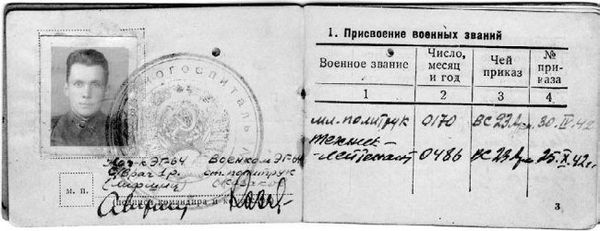 Нач-к ЭГ-64 Военком ЭГ-64
Врач 1 р. ст. политрук
М. П.
(подпись командира и к
1. Присвоение военных званий
Военное звание
Число, месяц и год
Чей приказ
№ приказа
1 2 3 4
мл. политрук 0170 ВС 23 Арм. 30.IV.42
техник-
-лейтенант 0486 ВС 23 Арм. 25.X.42г.
3